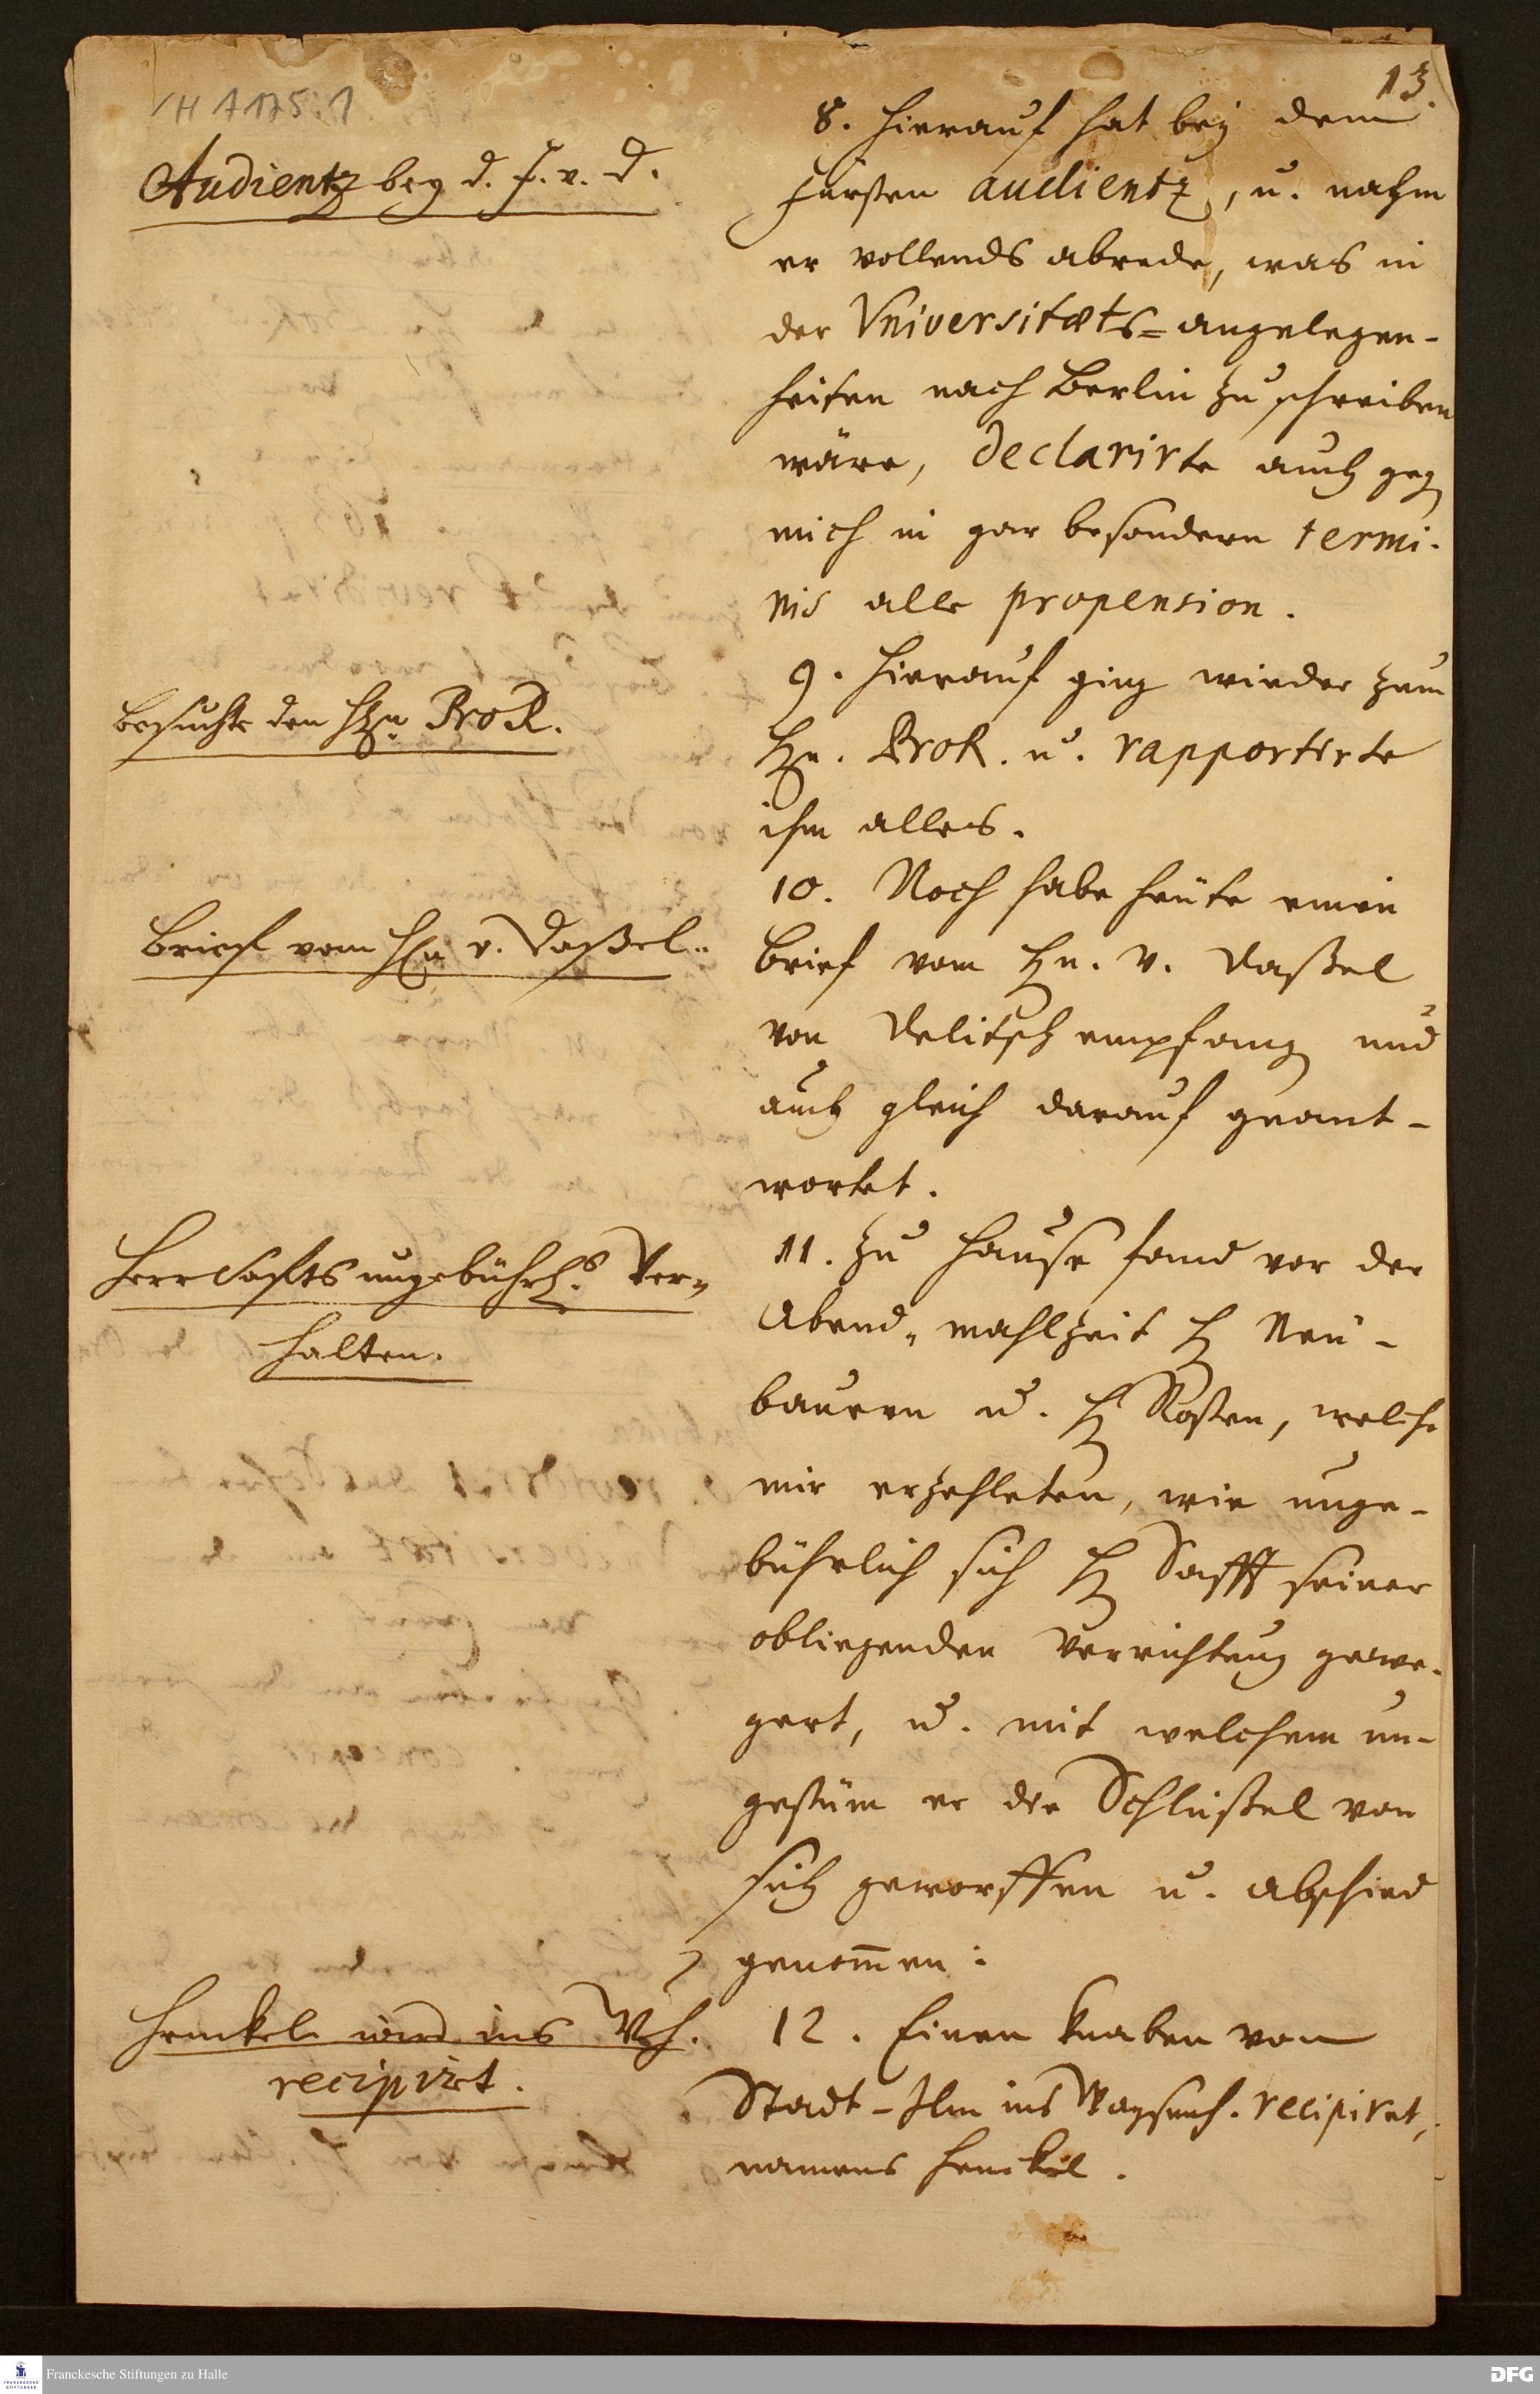 VH A 175:1
13.
Audientz bey d. F. v. D.
8. Hierauf hat bey dem
Fürsten audientz, u. nahm
er vollends abrede, was in
der Vniversitæts=angelegen-
heiten nach Berlin zu schreiben
wäre, declarirte auch geg
mich in gar besondern termi-
nis alle propension.
Besuchte den Hn. ProR.
9. Hierauf ging wieder zum
Hn. ProR. u. rapportirte
ihm alles.
Brief vom Hn v. Daßel.
10. Noch habe heüte einen
Brief vom Hn. v. Daßel
von Delitsch empfang und
auch gleich darauf geant-
wortet.
Herr Saffts ungebührl. Ver-
halten.
11. Zu Hause fand vor der
Abend-mahlzeit H Neu-
bauern u. H Rosten, welche
mir erzehleten, wie unge-
bührlich sich H Safft seiner
obliegenden Verrichtung gewe-
gert, u. mit welchem un-
gestüm er die Schlüßel von
sich geworffen u. abschied
genom̄en.
Henckel wird ins Wh.
recipirt.
12. Einen Knaben von
Stadt-Ilm ins Waysenh. recipiret,
namens Henckel.
Franckesche Stiftungen zu Halle
DFG